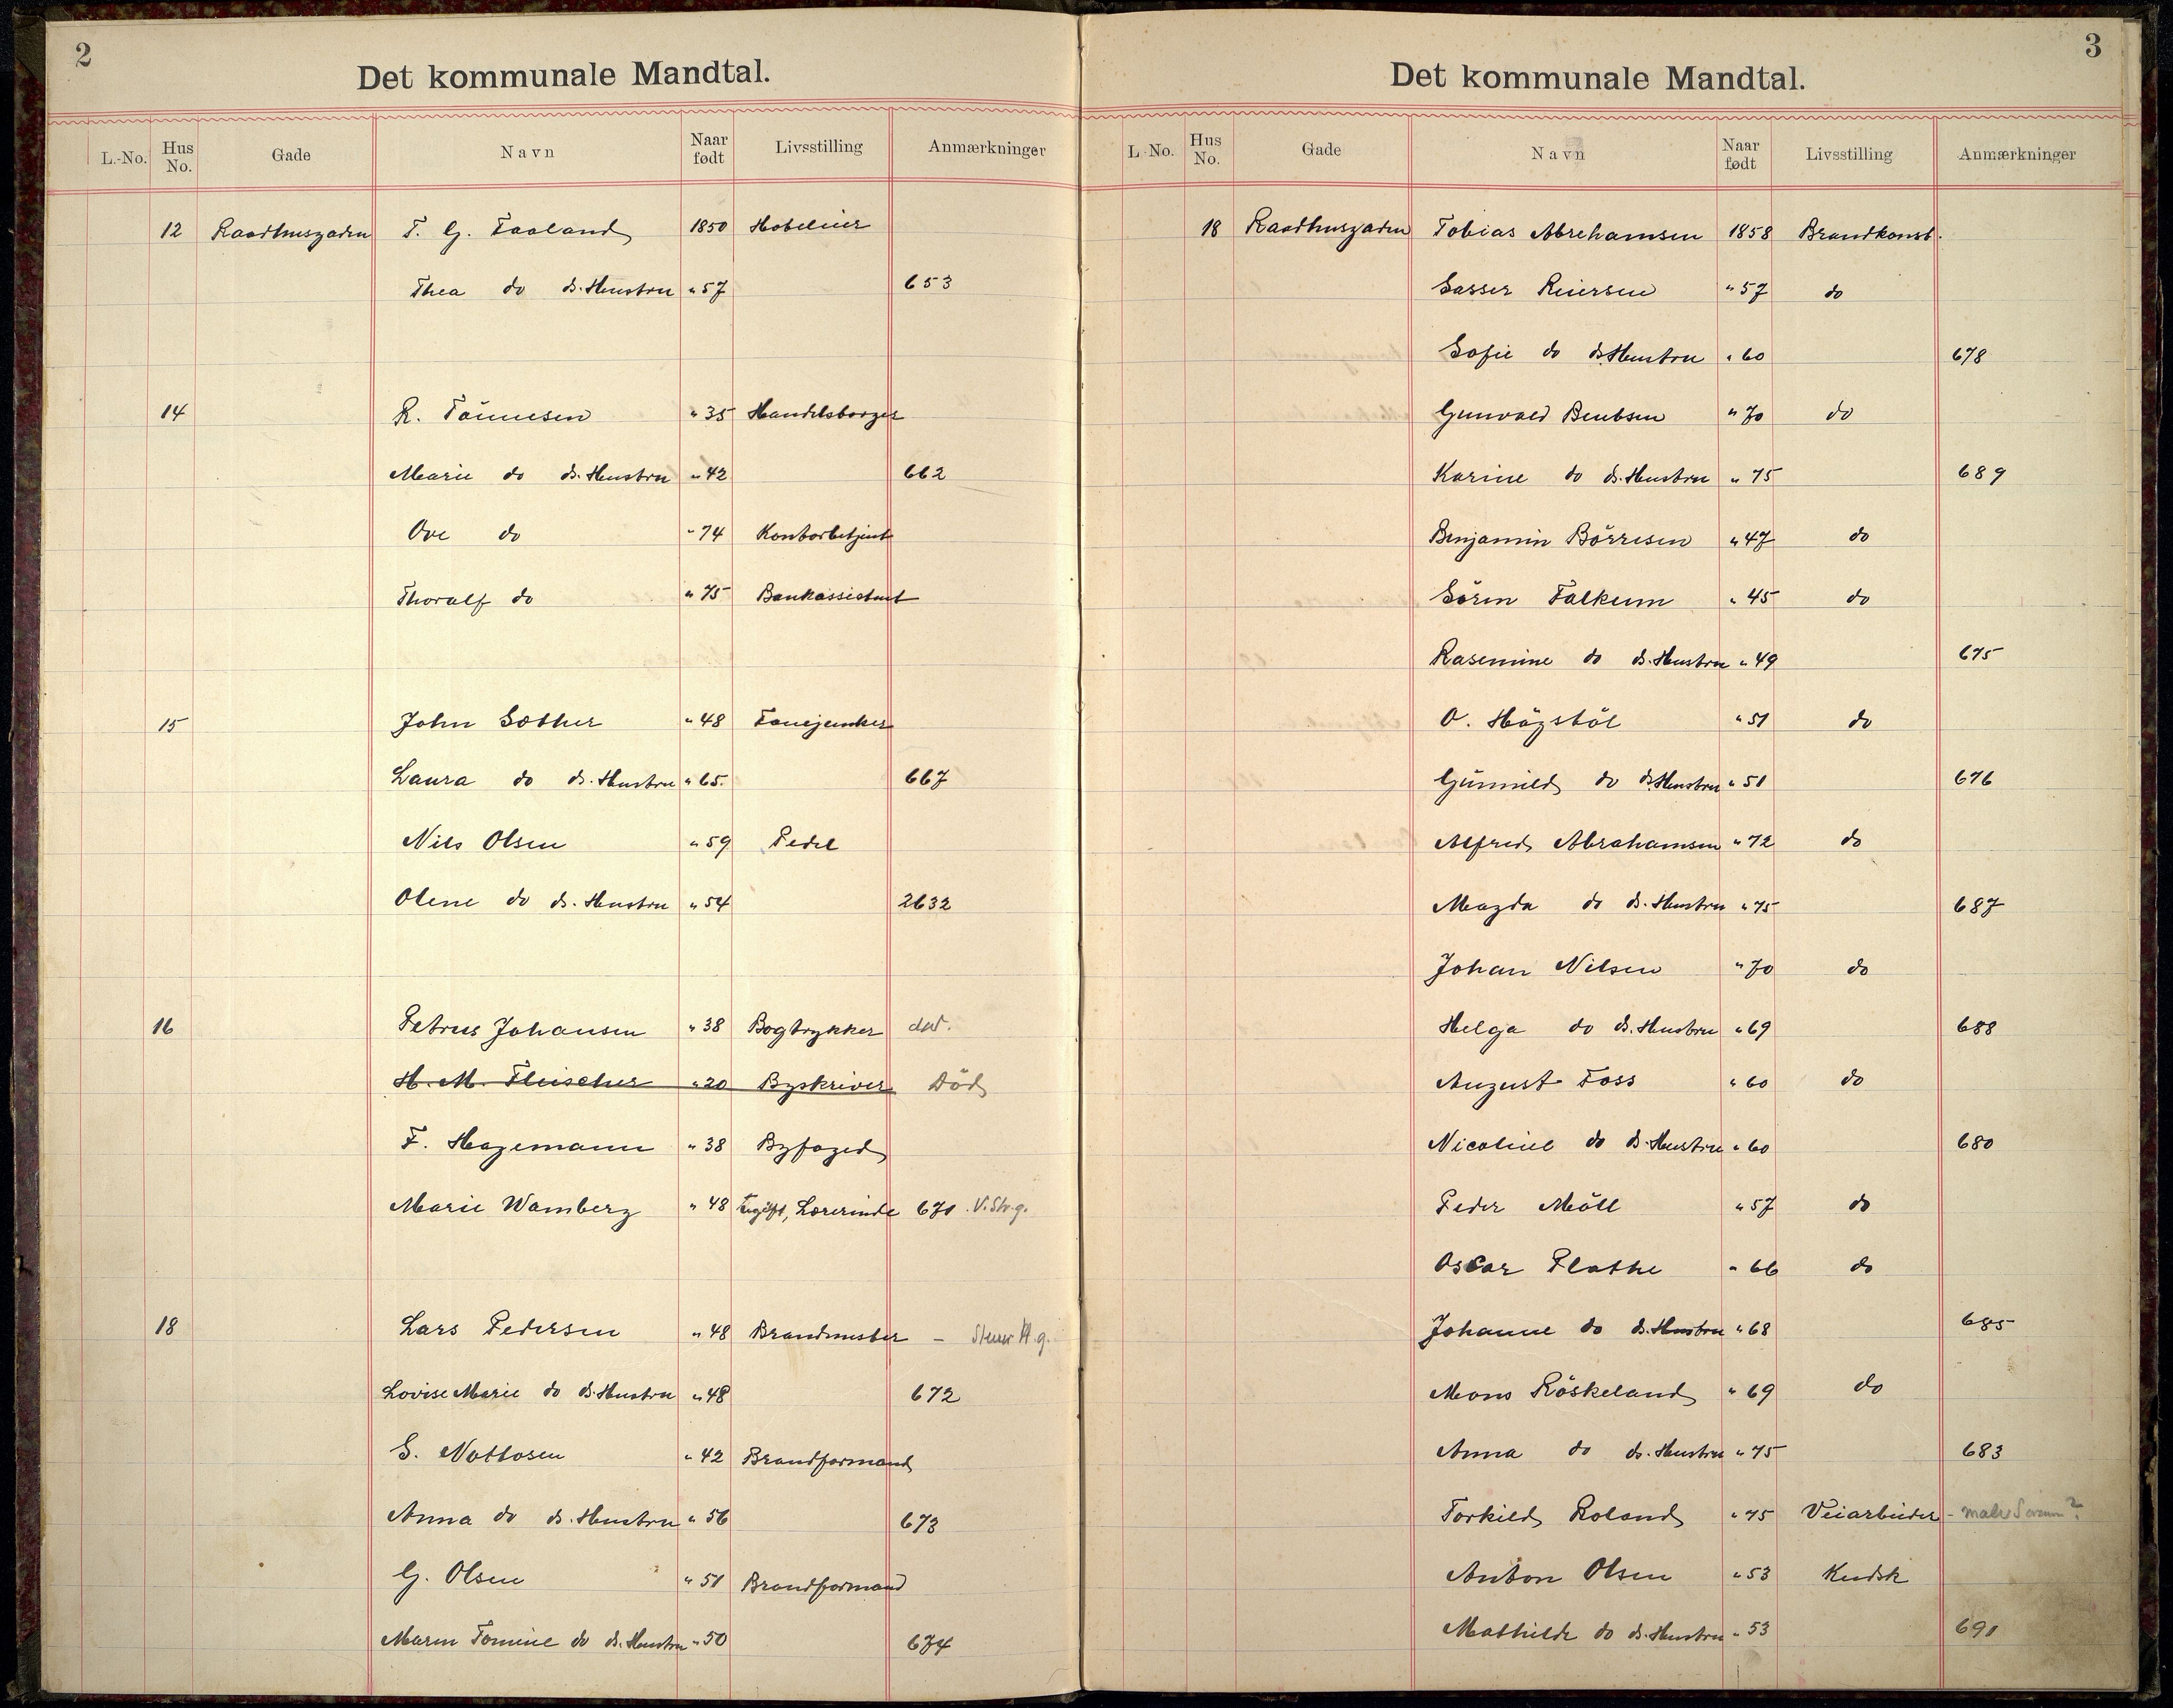 2
Det kommunale Mandtal.
L.-No. Hus No. Gade Navn Naar født Livsstilling Anmærkninger
12 Raadhusgaden T. G. Faaland 1850 Hoteleier
Thea do ds. Hustru " 57 653
14 R. Tönnesen " 35 Handelsborger
Marie do ds. Hustru " 42 662
Ove do " 74 Kontorbetjent
Thoralf do " 75 Bankassistent
15 John Sother " 48 Fanejunker
Laura do ds. Hustru " 65. 667
Nils Olsen " 59 Pedel
Olene do ds. Hustru " 54 2632
16 Petrus Johansen " 38 Bogtrykker död.
H. M. Fleischer " 20 Byskriver Död
F. Hagemann " 38 Byfoged
Marie Wamberg " 48 ugift, Lærerinde 671 V. Str.g.
18 Lars Pedersen " 48 Brandmester –
Lovise Marie do ds. Hustru " 48 672
S. Nottosen " 42 Brandformand
Anna do ds. Hustru " 56 673
G. Olsen " 51 Brandformand
Maren Tomine do ds. Hustru " 50 674
3
Det kommunale Mandtal.
L.-No. Hus No. Gade Navn Naar født Livsstilling Anmærkninger
18 Raadhusgaden Tobias Abrehamsen 1858 Brandkonst.
Sasser Reiersen " 57 do
Sofie do ds. Hustru " 60 678
Gunvald Bentsen " 70 do
Karine do ds. Hustru " 75 689
Benjamin Börresen " 47 do
Sören Falkum " 45 do
Rasemine do ds. Hustru " 49 675
O. Högstöl " 51 do
Günnild do ds. Hustru " 51 676
Alfred Abrahamsen " 72 do
Magda do ds. Hustru " 75 687
Johan Nilsen " 70 do
Helga do ds. Hustru " 69 688
August Foss " 60 do
Nicoline do ds. Hustru " 60 680
Peder Möll " 57 do
Oscar Plathe " 66 do
Johanne do ds. Hustru " 68 685
Mons Röskeland " 69 do
Anna do ds. Hustru " 75 683
Torkild Roland " 75 Veiarbeider -
Anton Olsen " 53 Kudsk
Mathilde do ds. Hustru " 53 691